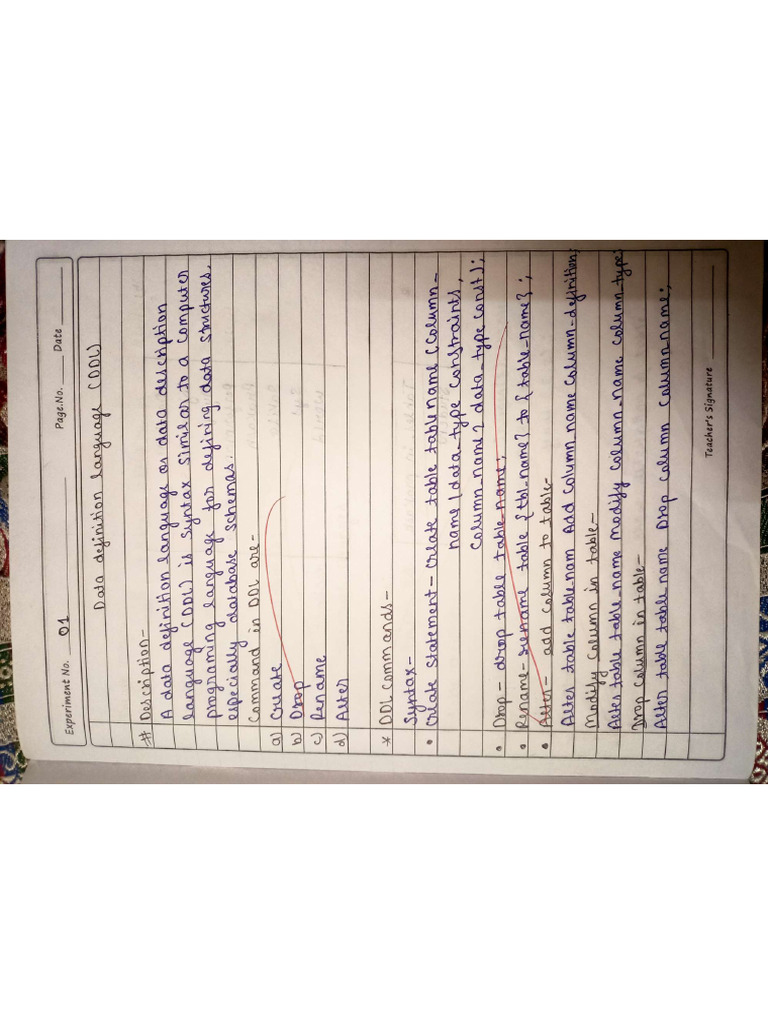 Experiment No. 01 Page.No. Date
Data definition language (DDL)
# Description-
A data definition language or data description
language (DDL) is syntax similar to a computer
programing language for defining data structures,
especially database schemas.
Command in DDL are-
a) Create
b) Drop
c) Rename
d) Alter
* DDL commands-
Syntax-
• Create statement- Create table table name (column-
name { data-type constraints,
column_name} data_type const);
• Drop- drop table table_name;
• Rename- rename table {tbl-name} to {table-name};
• Alter- add column to table-
Alter table table nam Add column name column-definition;
Modify column in table-
Alter table table_name modify column-name column_type;
Drop column in table-
Alter table table name Drop column column-name;
Teacher's Signature